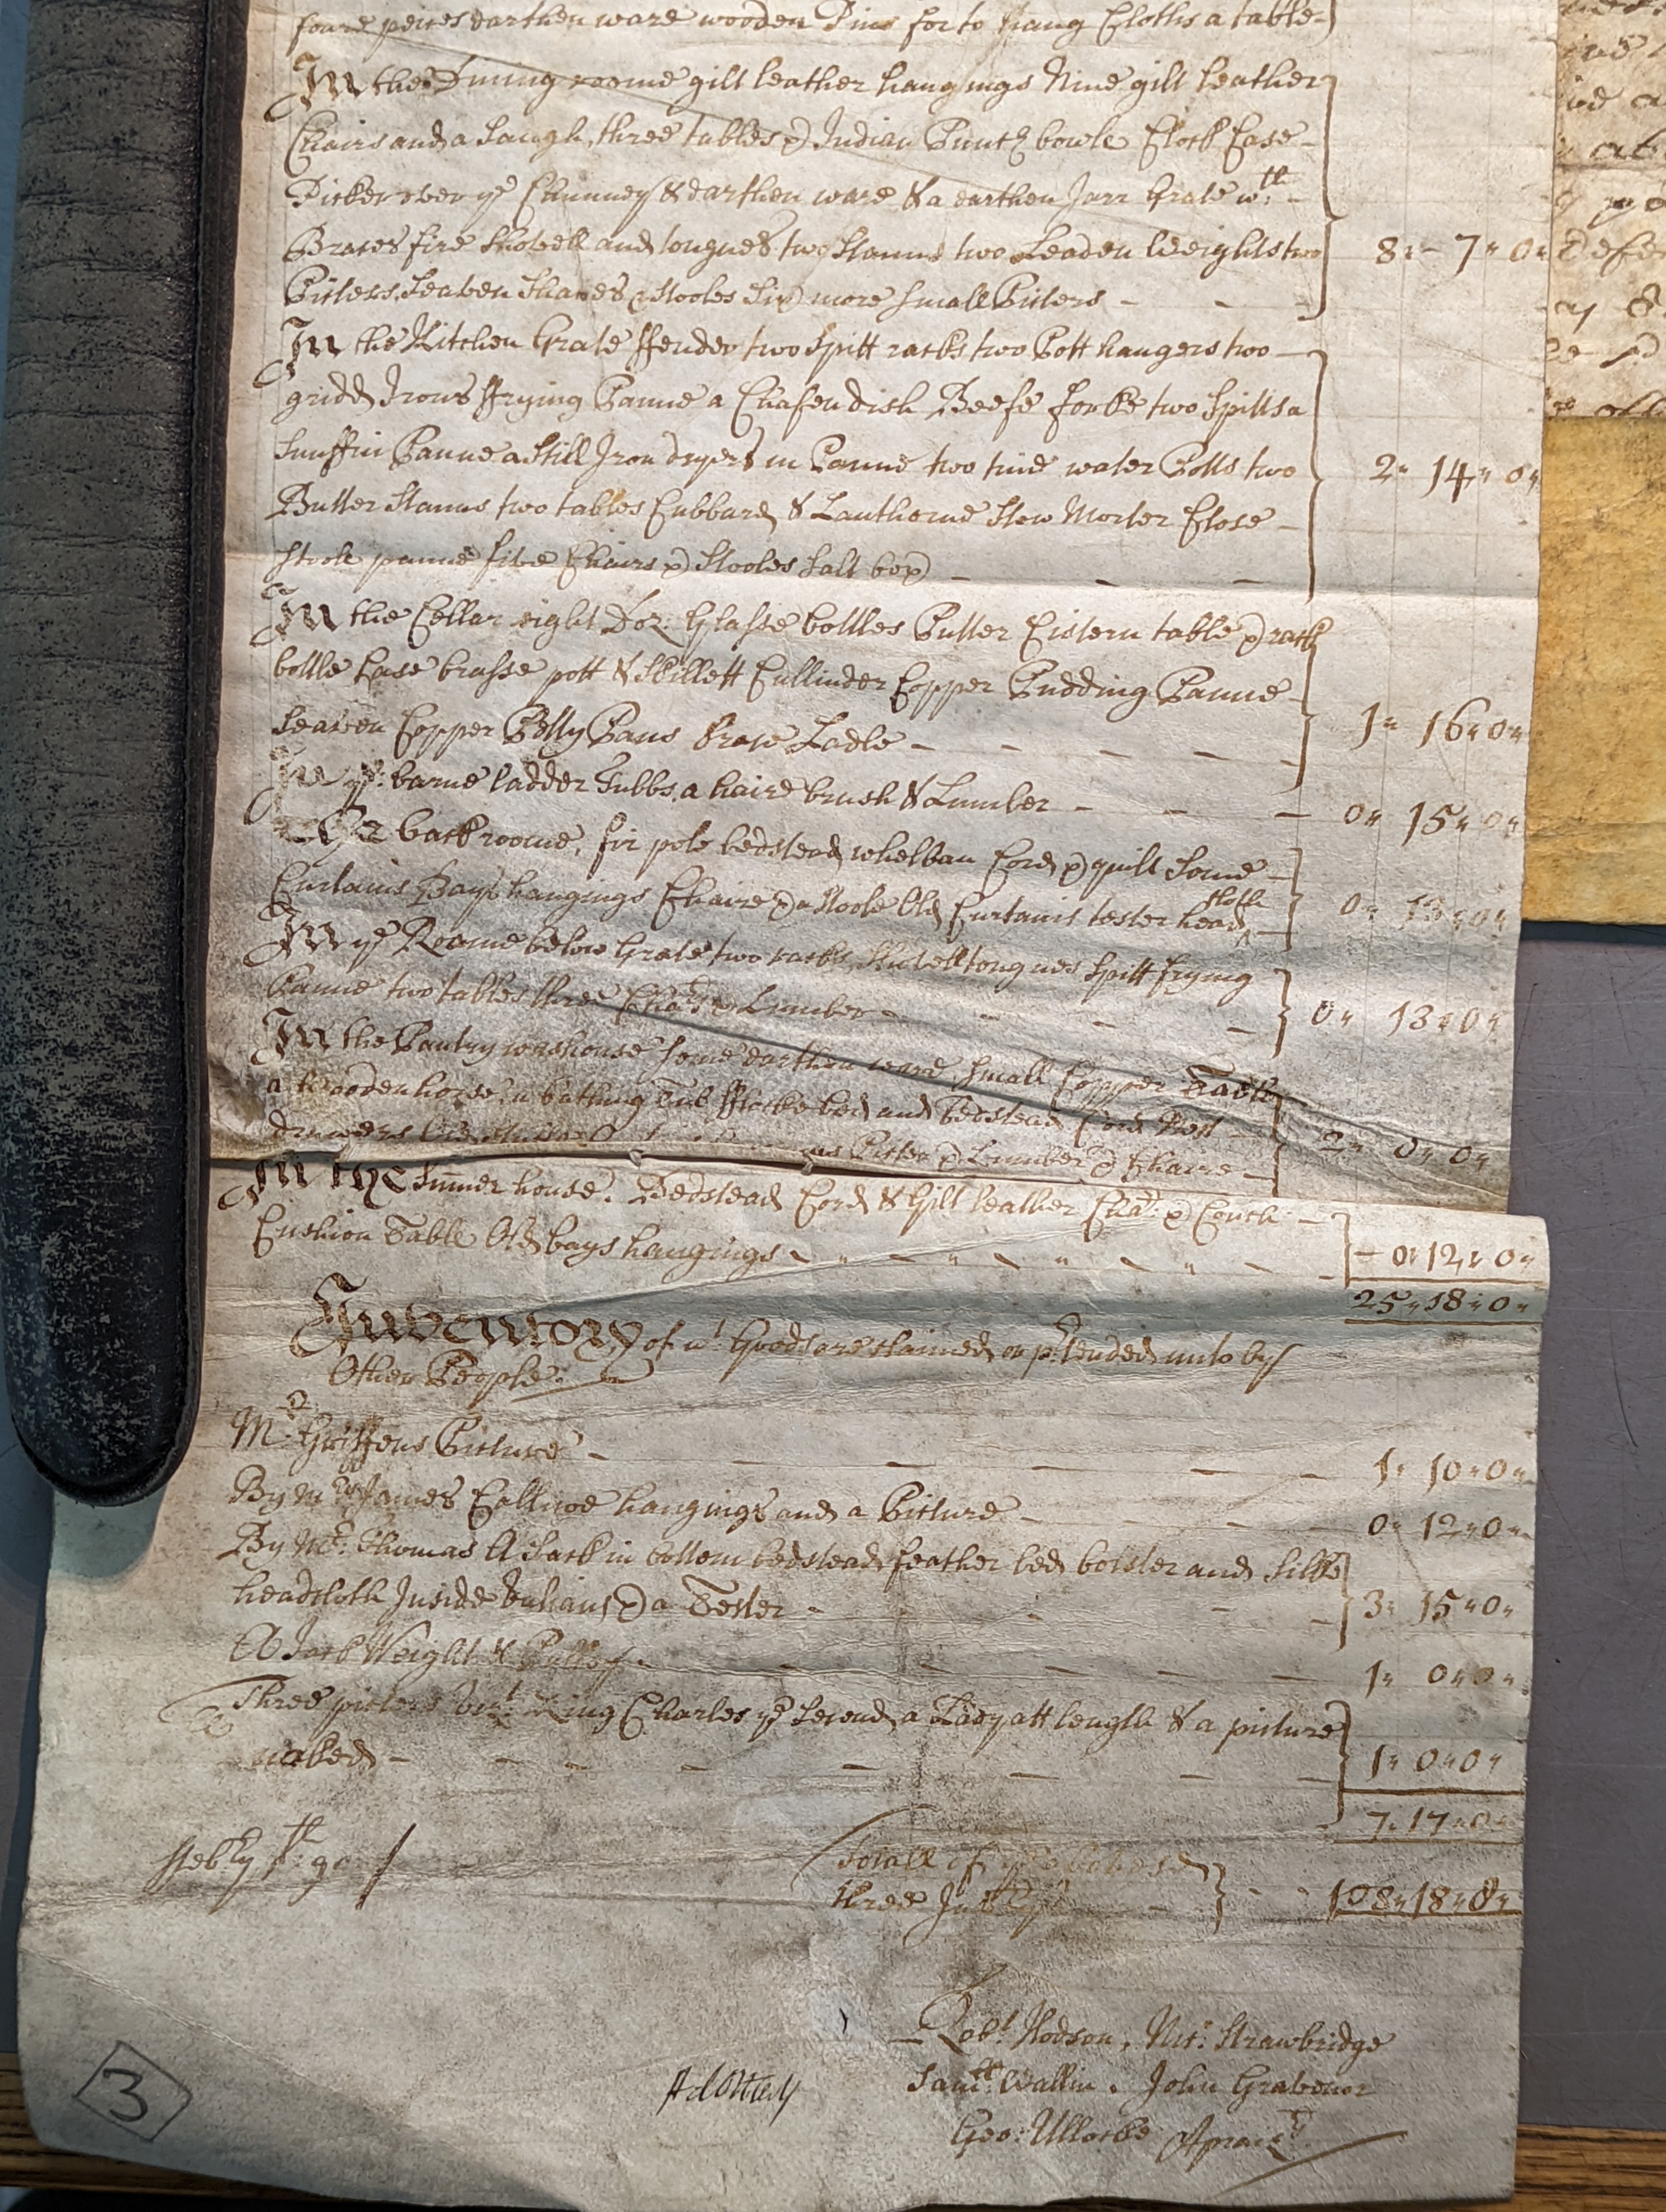 foure peices earthen ware wooden Pins for to hang Cloths a table
In the Dining roome gilt leather hangings Nine gilt leather
Chairs and a Couch, three tables & Indian Punch bowle Clock Case
Picker over ye Chimney & earthen ware & a earthen Jarr Grate wth
Braces fire Shovell and tongues two Stanns two Leaden Weights two 8 - 7 - 0
Picters Seaven Chaires & Stooles Six more small Picters
In the Kitchen Grate ffender two Spitt racks two Pott hangers two
gridd Irons ffrying Panne a Chafen dish Beefe forke two Spitts a
Snuffin Panne a Still Iron dryers in Panne two tine water Potts two 2 - 14 - 0
Butter Stanns two tables Cubbard & Lanthorne Stow Morter Close
stoole panne five Chairs & Stooles Salt box
In the Cellar eight Doz: Glasse bottles Putter Cistern table & rack
bottle Case brasse pott & Skillett Cullinder Copper Pudding Panne
Seaven Copper Petty Pans Brase Ladle 1 - 16 - 0
In ye: barne ladder Tubbs a haire brush & Lumber 0 - 15 - 0
backroome, fir pole bedstead Cord & quilt some
Curtains Bays hangings Chaire & a Stoole Old Curtains tester head Cloth 0 - 13 - 0
In ye Roome below Grate two racks, Shovell tongues Spitt frying
Panne two tables three Chars & Lumber 0 - 13 - 0
In the Pantry washouse some earthen ware, small Copper Table
a Woodenhorse, a bathing Tub fflocke bed and Bedstead Cord Nest
drawers Picter & Lumber & Chaire 2 - 0 - 0
In the Summer house. Bedstead Cord & Gilt leather Cha: & Couch
Cushion Table Old bays hangings 0 - 12 - 0
25 - 18 - 0
Inventory of wt: Goods are claimed or prtended unto by
Other People
Mr: Griffens Picture 1 - 10 - 0
By Mr James Callicoe hangings and a Picture 0 - 12 - 0
By Mr: Thomas A Sack in bottem bedstead feather bed bolster and Silke
headcloth Inside Valians & a Tester 3 - 15 - 0
A Jack Weight & Pulley 1 - 0 - 0
Three picters vizt: King Charles ye Second, a Lady att length & a picture
naked 1 - 0 - 0
7 - 17 - 0
ffebry th: 90
Totall of ye abovesd
three 108 - 18 - 8
Robt Hodson, Nic: Strawbridge
Samll: Wallin. John Gravenor
Geo: Ullocke Aprais
3